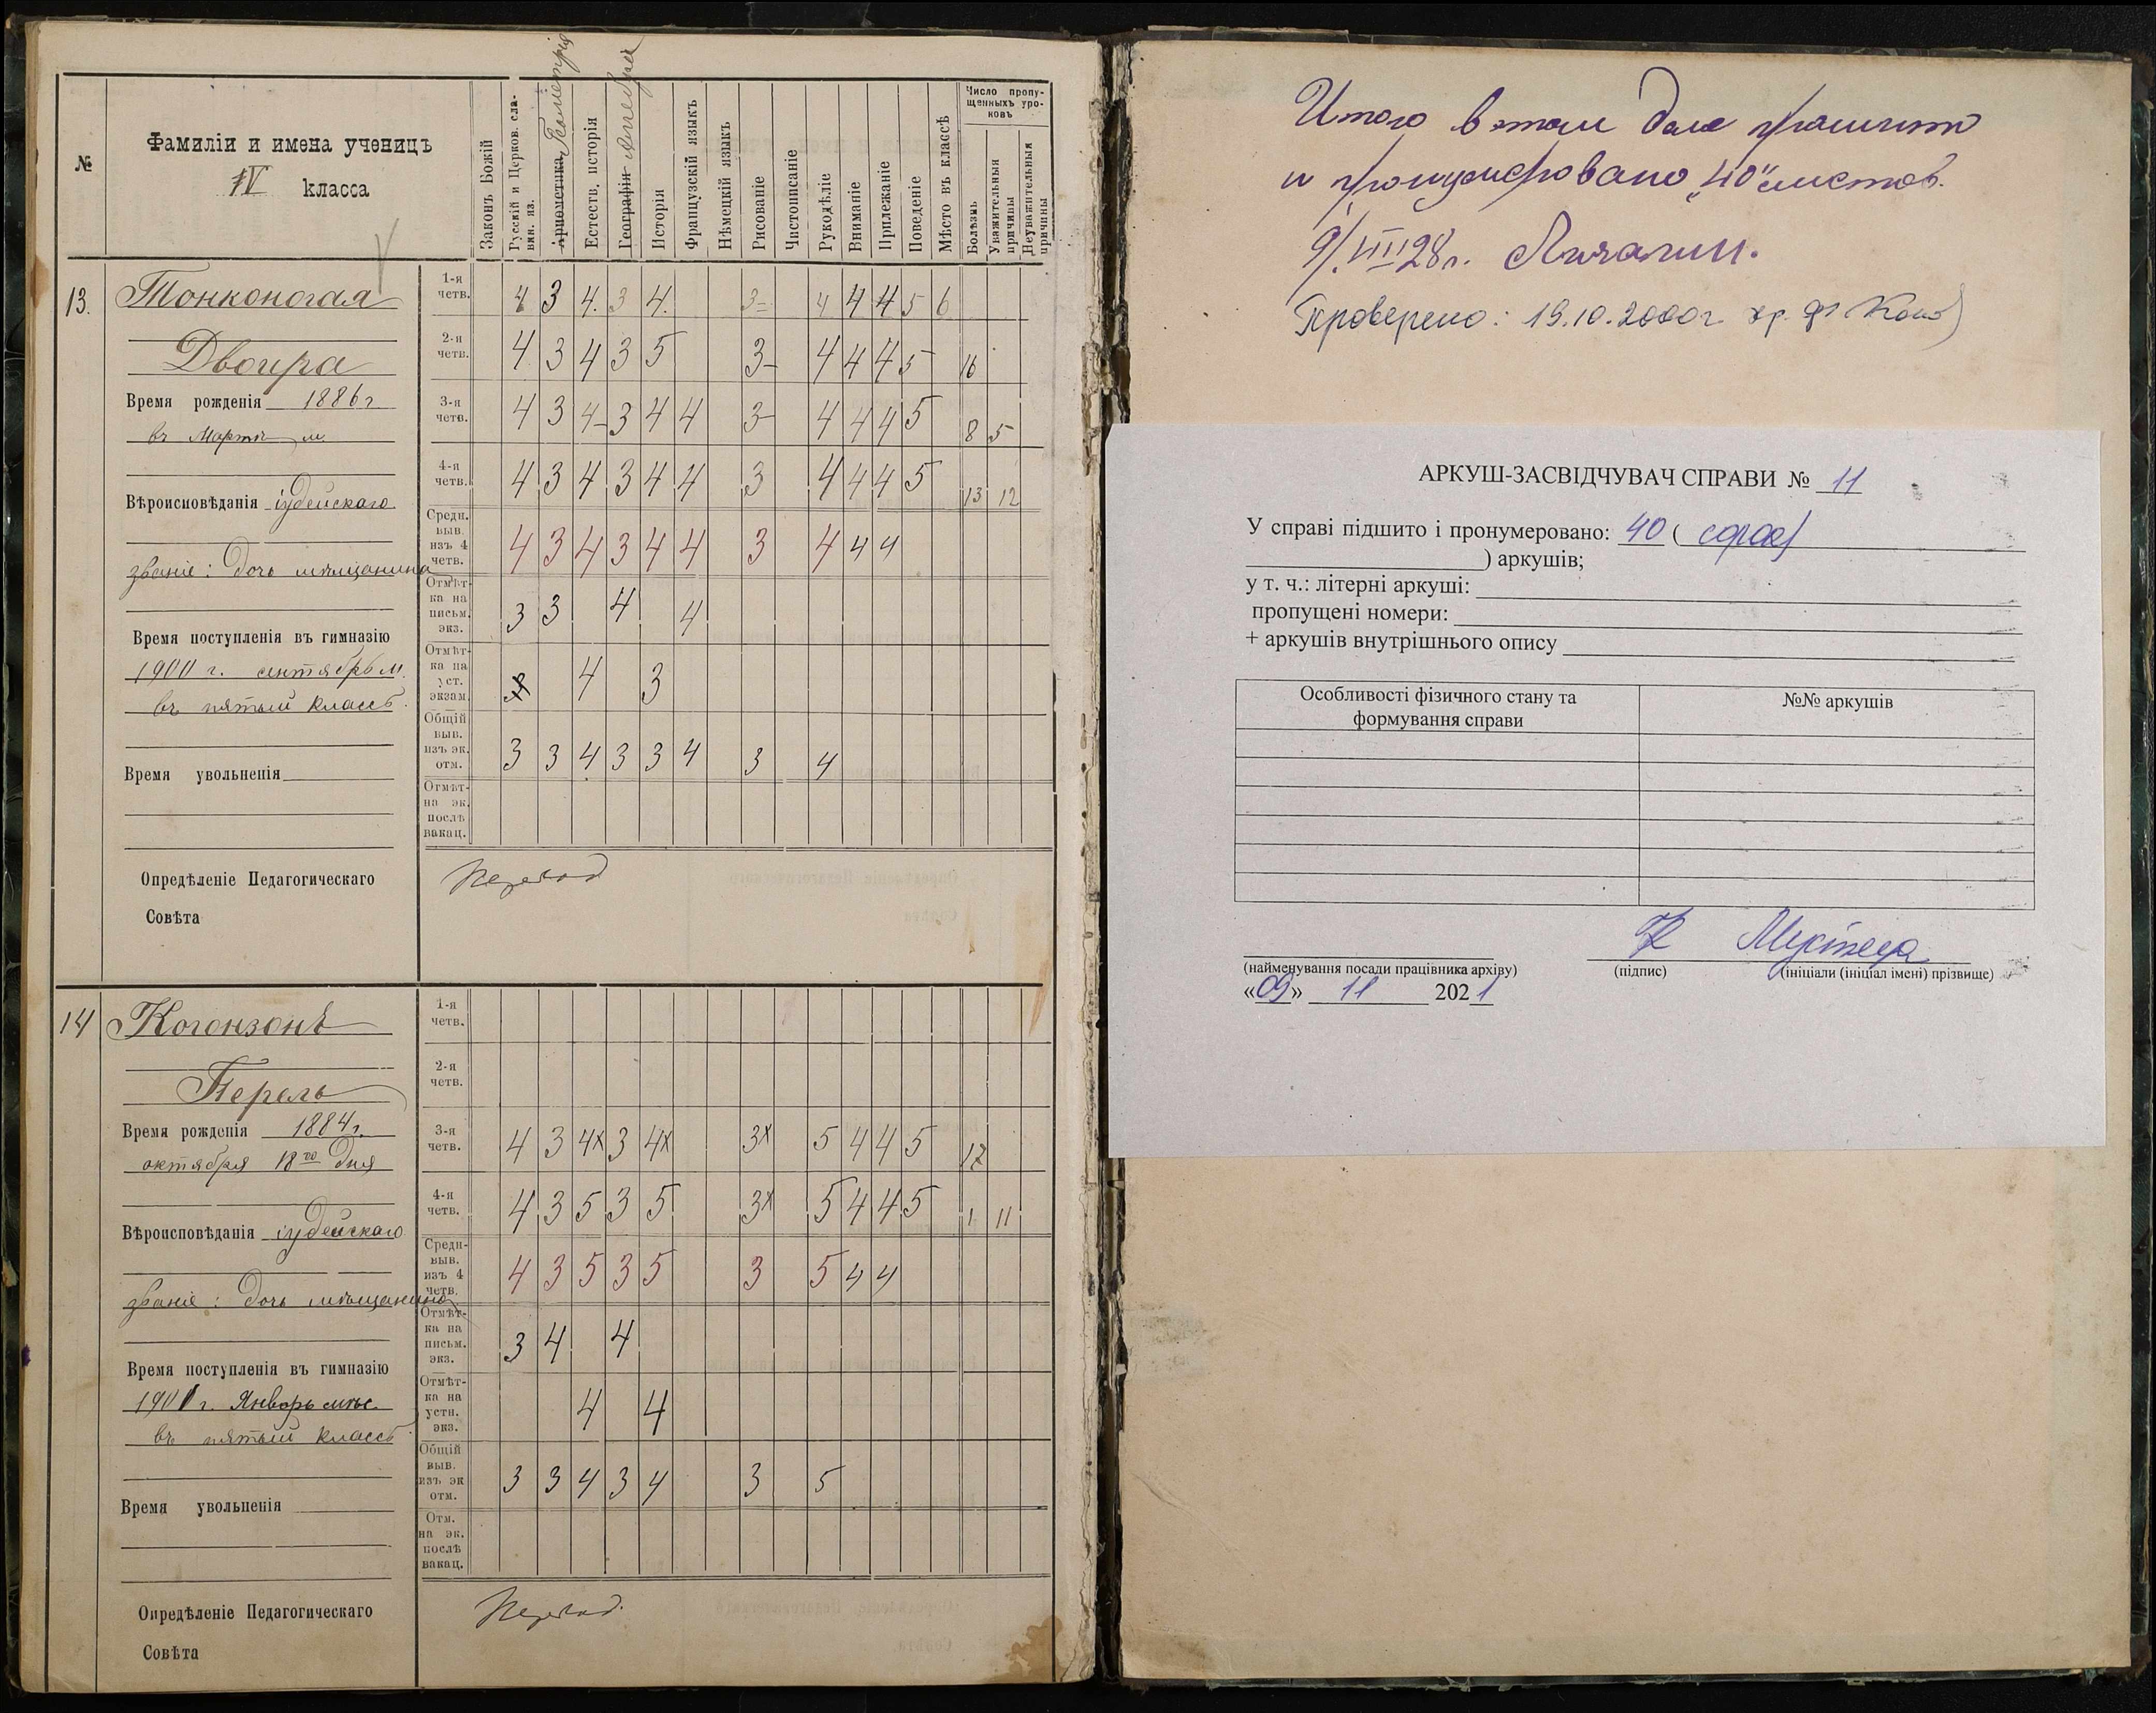 №
Фамиліи и имена ученицъ
IV класса
Законъ Божій
Русскій и Церков. сла-
вян. яз.
Ариѳметика Геометрія
Естеств. исторія
Географія Алгебра
Исторія
Французскій языкъ
Нѣмецкій языкъ
Рисованіе
Чистописаніе
Рукодѣліе
Вниманіе
Прилежаніе
Поведеніе
Мѣсто въ классѣ
Число пропу-
щенныхъ уро-
ковъ
Болѣзнь
Уважительныя
причины
Неуважительныя
причины
13. Тонконогая
Двойра
Время рожденія 1886 г
въ Мартѣ м.
Вѣроисповѣданія іудейскаго
званіе: дочь мѣщанина
Время поступленія въ гимназію
1900 г. сентябрь м.
въ пятый классъ.
Время увольненія
Опредѣленіе Педагогическаго
Совѣта
1-я четв. 4 3 4. 3 4. 3= 4 4 4 5 6
2-я четв. 4 3 4 3 5 3- 4 4 4 5 16
3-я четв. 4 3 4- 3 4 4 3- 4 4 4 5 8 5
4-я четв. 4 3 4 3 4 4 3 4 4 4 5 13 12
Средн. выв. изъ 4 четв. 4 3 4 3 4 4 3 4 4 4
Отмѣт-ка на письм. экз. 3 3 4 4
Отмѣт-ка на уст. экзам. 4 3
Общій выв. изъ эк. отм. 3 3 4 3 3 4 3 4
Отмѣт-на эк. послѣ вакац.
Перевод
14 Когонзонъ
Перель
Время рожденія 1884 г.
октября 18го дня
Вѣроисповѣданія іудейскаго
званіе: дочь мѣщанина
Время поступленія въ гимназію
1901 г. Январь мѣс.
въ пятый классъ.
Время увольненія
Опредѣленіе Педагогическаго
Совѣта
1-я четв.
2-я четв.
3-я четв. 4 3 4x 3 4x 3x 5 4 4 5 17
4-я четв. 4 3 5 3 5 3x 5 4 4 5 1 11
Средн-выв. изъ 4 четв. 4 3 5 3 5 3 5 4 4
Отмѣт-ка на письм. экз. 3 4 4
Отмѣт-ка на устн. экз. 4 4
Общій выв. изъ эк отм. 3 3 4 3 4 3 5
Отм. на эк. послѣ вакац.
Перевод.
Итого в этом деле прошито
и пронумеровано „40" листов.
9/VIII 28 г.
Проверено: 19.10.2000г
АРКУШ-ЗАСВІДЧУВАЧ СПРАВИ № 11
У справі підшито і пронумеровано: 40 ( сорок )
) аркушів;
у т. ч.: літерні аркуші:
пропущені номери:
+ аркушів внутрішнього опису
Особливості фізичного стану та
формування справи
№№ аркушів
(найменування посади працівника архіву) (підпис) (ініціали (ініціал імені) прізвище)
«09» 11 2021